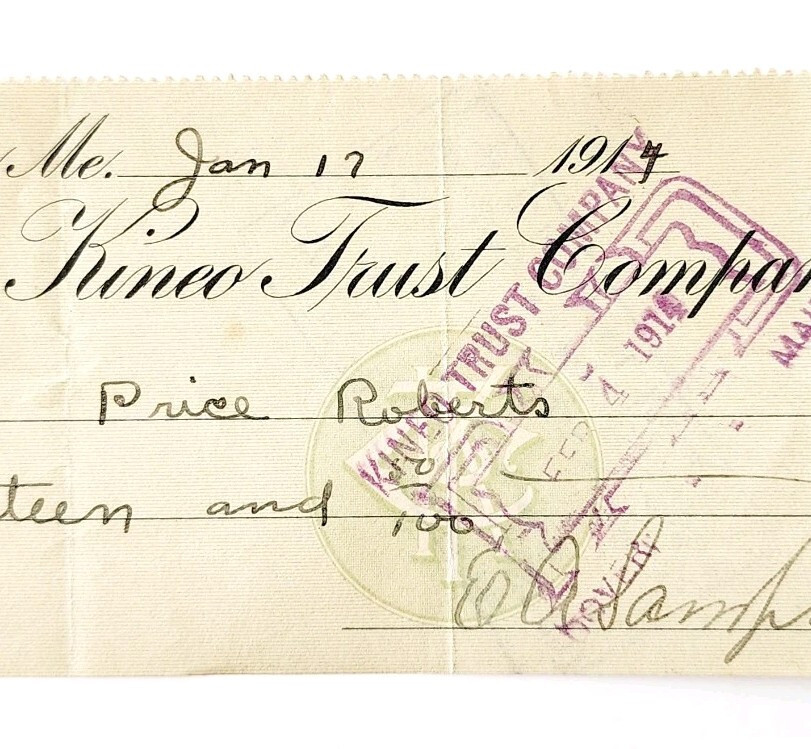 Me. Jan 17 1914
Kineo Trust Compan
Price Roberts
teen and 50/100
E A Samp
KINEO TRUST COMPANY
FEB 4 1914
DOVER, ME